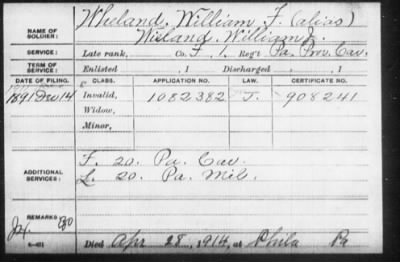 NAME OF SOLDIER: Wheland, William F. (alias)
Wieland, William F.
SERVICE: Late rank, Co. F, 1 Reg't Pa. Prov. Cav.
TERM OF SERVICE: Enlisted , 1 Discharged , 1
DATE OF FILING. CLASS. APPLICATION NO. LAW. CERTIFICATE NO.
1891 Dec 14 Invalid, 1082382 J. 908241
Widow,
Minor,
ADDITIONAL SERVICES: F. 20. Pa. Cav.
L. 20. Pa. Mil.
REMARKS:
Died Apr 28, 1914, at Phila Pa